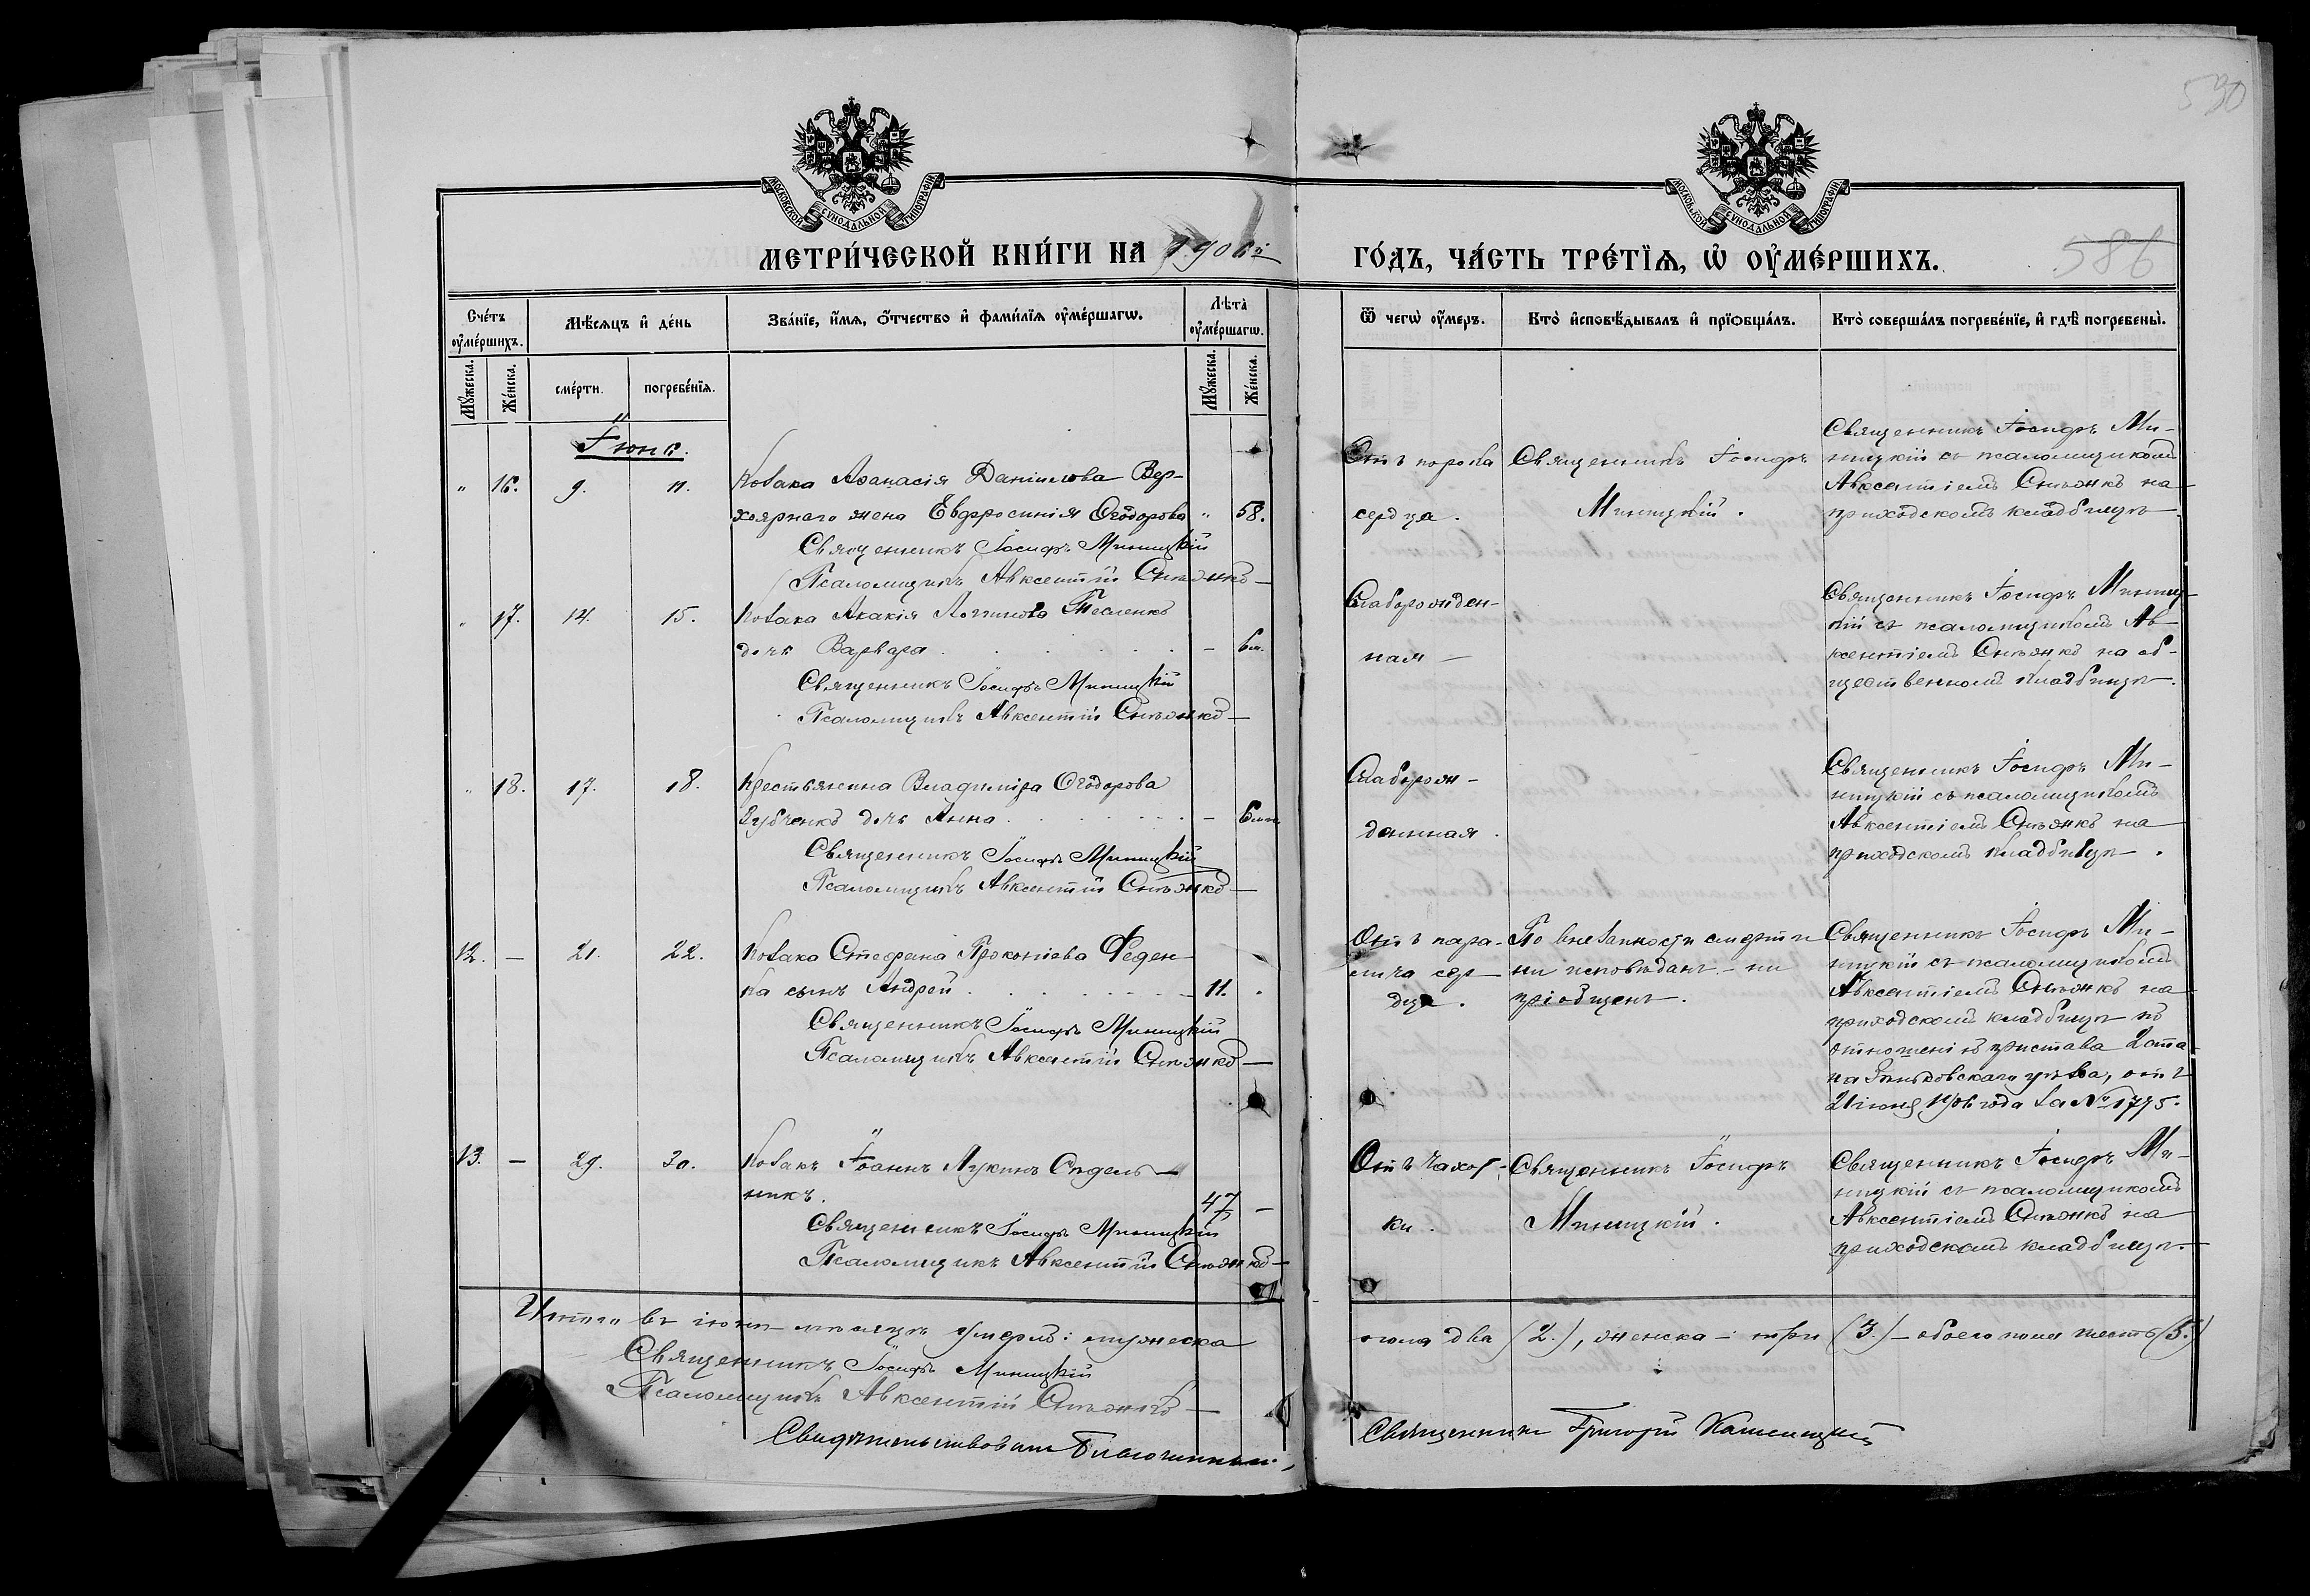 590
МОСКОВСКОЙ СѴНОДАЛЬНОЙ ТИПОГРАФІИ
МОСКОВСКОЙ СѴНОДАЛЬНОЙ ТИПОГРАФІИ
МЕТРИ́ЧЕСКОЙ КНИ́ГИ НА 1906й
ГО́ДЪ, ЧА́СТЬ ТРЕ́ТІѦ, Ѡ҆ ОУ҆МЕ́РШИХЪ.
586
Сче́тъ оу҆ме́ршихъ.
Мѣ́сяцъ и҆ де́нь
Зва́нїе, и҆́мѧ, ѻ҆́тчество и҆ фами́лїѧ оу҆ме́ршагѡ.
Лѣ́та оу҆ме́ршагѡ.
Ѿ чегѡ̀ оу҆́меръ.
Кто̀ и҆сповѣ́дывалъ и҆ прїѻбща́лъ.
Кто̀ соверша́лъ погребе́нїе, и҆ гдѣ̀ погребены̀.
Мꙋ́жеска.
Же́нска.
сме́рти.
погребе́нїѧ.
Мꙋ́жеска.
Же́нска.
Іюнь.
" 16. 9. 11. Козака Аѳанасія Даніилова Вер-
хоярнаго жена Евдросинія Ѳеодорова " 58.
Священникъ Іосифъ Миницкій
Псаломщикъ Авксентій Снѣжко
Отъ порока
сердца.
Священникъ Іосифъ
Миницкій.
Священникъ Іосифъ Ми-
ницкій съ псаломщикомъ
Авксентіемъ Снѣжко на
приходскомъ кладбищѣ
" 17. 14. 15. Козака Акакія Логинова Тесленко
дочь Варвара - 6м.
Священникъ Іосифъ Миницкій
Псаломщикъ Авксентій Снѣжко
Слаборожден-
ная
Священникъ Іосифъ Миниц-
кій съ псаломщикомъ Ав-
ксентіемъ Снѣжко на об-
щественномъ кладбищѣ.
" 18. 17. 18. Крестьянина Владиміра Ѳеодорова
Зубченко дочь Анна -
Священникъ Іосифъ Миницкій
Псаломщикъ Авксентій Снѣжко
Слаборож-
денная.
Священникъ Іосифъ Ми-
ницкій съ псаломщикомъ
Авксентіемъ Снѣжко на
приходскомъ кладбищѣ.
12. - 21. 22. Козака Стефана Прокопіева Феден-
ка сынъ Андрей 11.
Священникъ Іосифъ Миницкій
Псаломщикъ Авксентій Снѣжко
Отъ пара-
лича сер-
дца.
По внезапности смерти
ни исповѣданъ - ни
пріобщенъ.
Священникъ Іосифъ Ми-
ницкій съ псаломщикомъ
Авксентіемъ Снѣжко на
приходскомъ кладбищѣ по
отношенію пристава 2 ста-
на Зеньковскаго уѣзда, отъ
21 іюня 1906 года за № 1775.
13. - 29. 30. Козакъ Іоаннъ Лукинъ Сидель-
никъ. 47 -
Священникъ Іосифъ Миницкій
Псаломщикъ Авксентій Снѣжко
Отъ чахот-
ки.
Священникъ Іосифъ
Миницкій.
Священникъ Іосифъ Ми-
ницкій съ псаломщикомъ
Авксентіемъ Снѣжко на
приходскомъ кладбищѣ.
Итого въ іюнѣ мѣсяцѣ умерло: мужеска
пола два (2.), женска - три (3.) - обоего пола (5.)
Священникъ Іосифъ Миницкій
Псаломщикъ Авксентій Снѣжко
Свидѣтельствовалъ Благочинный,
Священникъ Григорій